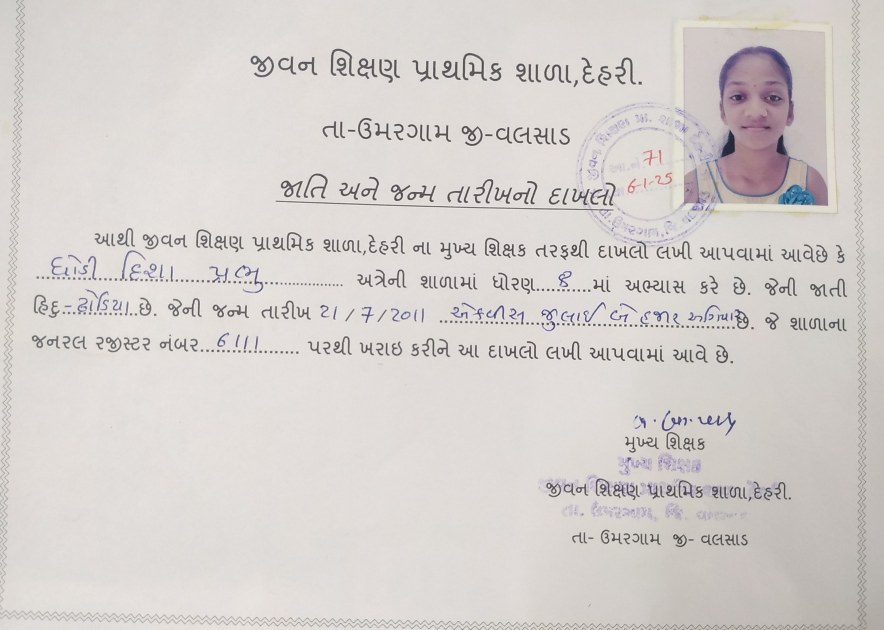 જીવન શિક્ષણ પ્રાથમિક શાળા,દેહરી.
તા-ઉમરગામ જી-વલસાડ
71
6-1-25
જાતિ અને જન્મ તારીખનો દાખલો
આથી જીવન શિક્ષણ પ્રાથમિક શાળા,દેહરી ના મુખ્ય શિક્ષક તરફથી દાખલો લખી આપવામાં આવેછે કે
ધોડી દિશા પ્રભુ અત્રેની શાળામાં ધોરણ 8 માં અભ્યાસ કરે છે. જેની જાતી
હિંદુ-ઢોડિયા છે. જેની જન્મ તારીખ 21/7/2011 એકવીસ જુલાઈ બે હજાર અગિયાર છે. જે શાળાના
જનરલ રજીસ્ટર નંબર 6111 પરથી ખરાઇ કરીને આ દાખલો લખી આપવામાં આવે છે.
મુખ્ય શિક્ષક
મુખ્ય શિક્ષક
જીવન શિક્ષણ પ્રાથમિક શાળા,દેહરી.
તા. ઉમરગામ, જિ.
તા- ઉમરગામ જી- વલસાડ